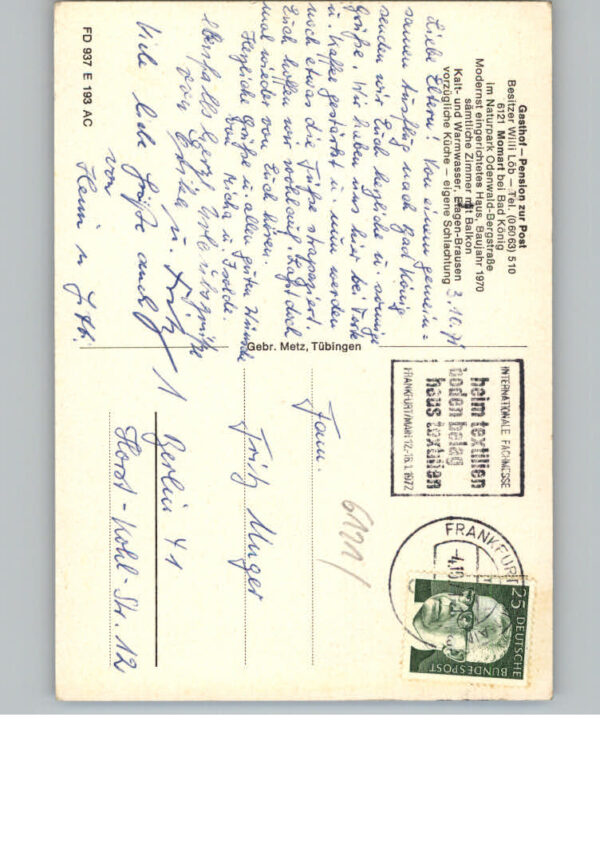 Gasthof – Pension zur Post
Besitzer Willi Löb – Tel. (06063) 510
6121 Momart bei Bad König
im Naturpark Odenwald-Bergstraße
Modernst eingerichtetes Haus, Baujahr 1970
sämtliche Zimmer mit Balkon
Kalt- und Warmwasser, Etagen-Brausen
vorzügliche Küche – eigene Schlachtung
3.10.71
Liebe Eltern! Von einem gemein=
samen Ausflug nach Bad König
senden wir Euch herzliche u. sonnige
Grüße. Wir haben uns hier bei Torte
u. Kaffee gestärkt u. nun werden
noch etwas die Füße strapaziert.
Euch hoffen wir wohlauf. Laßt doch
mal wieder von Euch hören.
Herzliche Grüße u. alles guten Wünsche
Eure Micha u. Isolde.
Ebenfalls herzl. Grüße
von Erika u. Fritz
Viele liebe Grüße auch
von
Henni u.
FD 937 E 193 AC
Gebr. Metz, Tübingen
INTERNATIONALE FACHMESSE
heim textilien
boden belag
haus textilien
FRANKFURT/MAIN 12.-16.1.1972
FRANKFURT
-4.10
25 DEUTSCHE
BUNDESPOST
6121/
Fam.
Fritz Unger
1 Berlin 41
Horst-Kohl-Str. 12